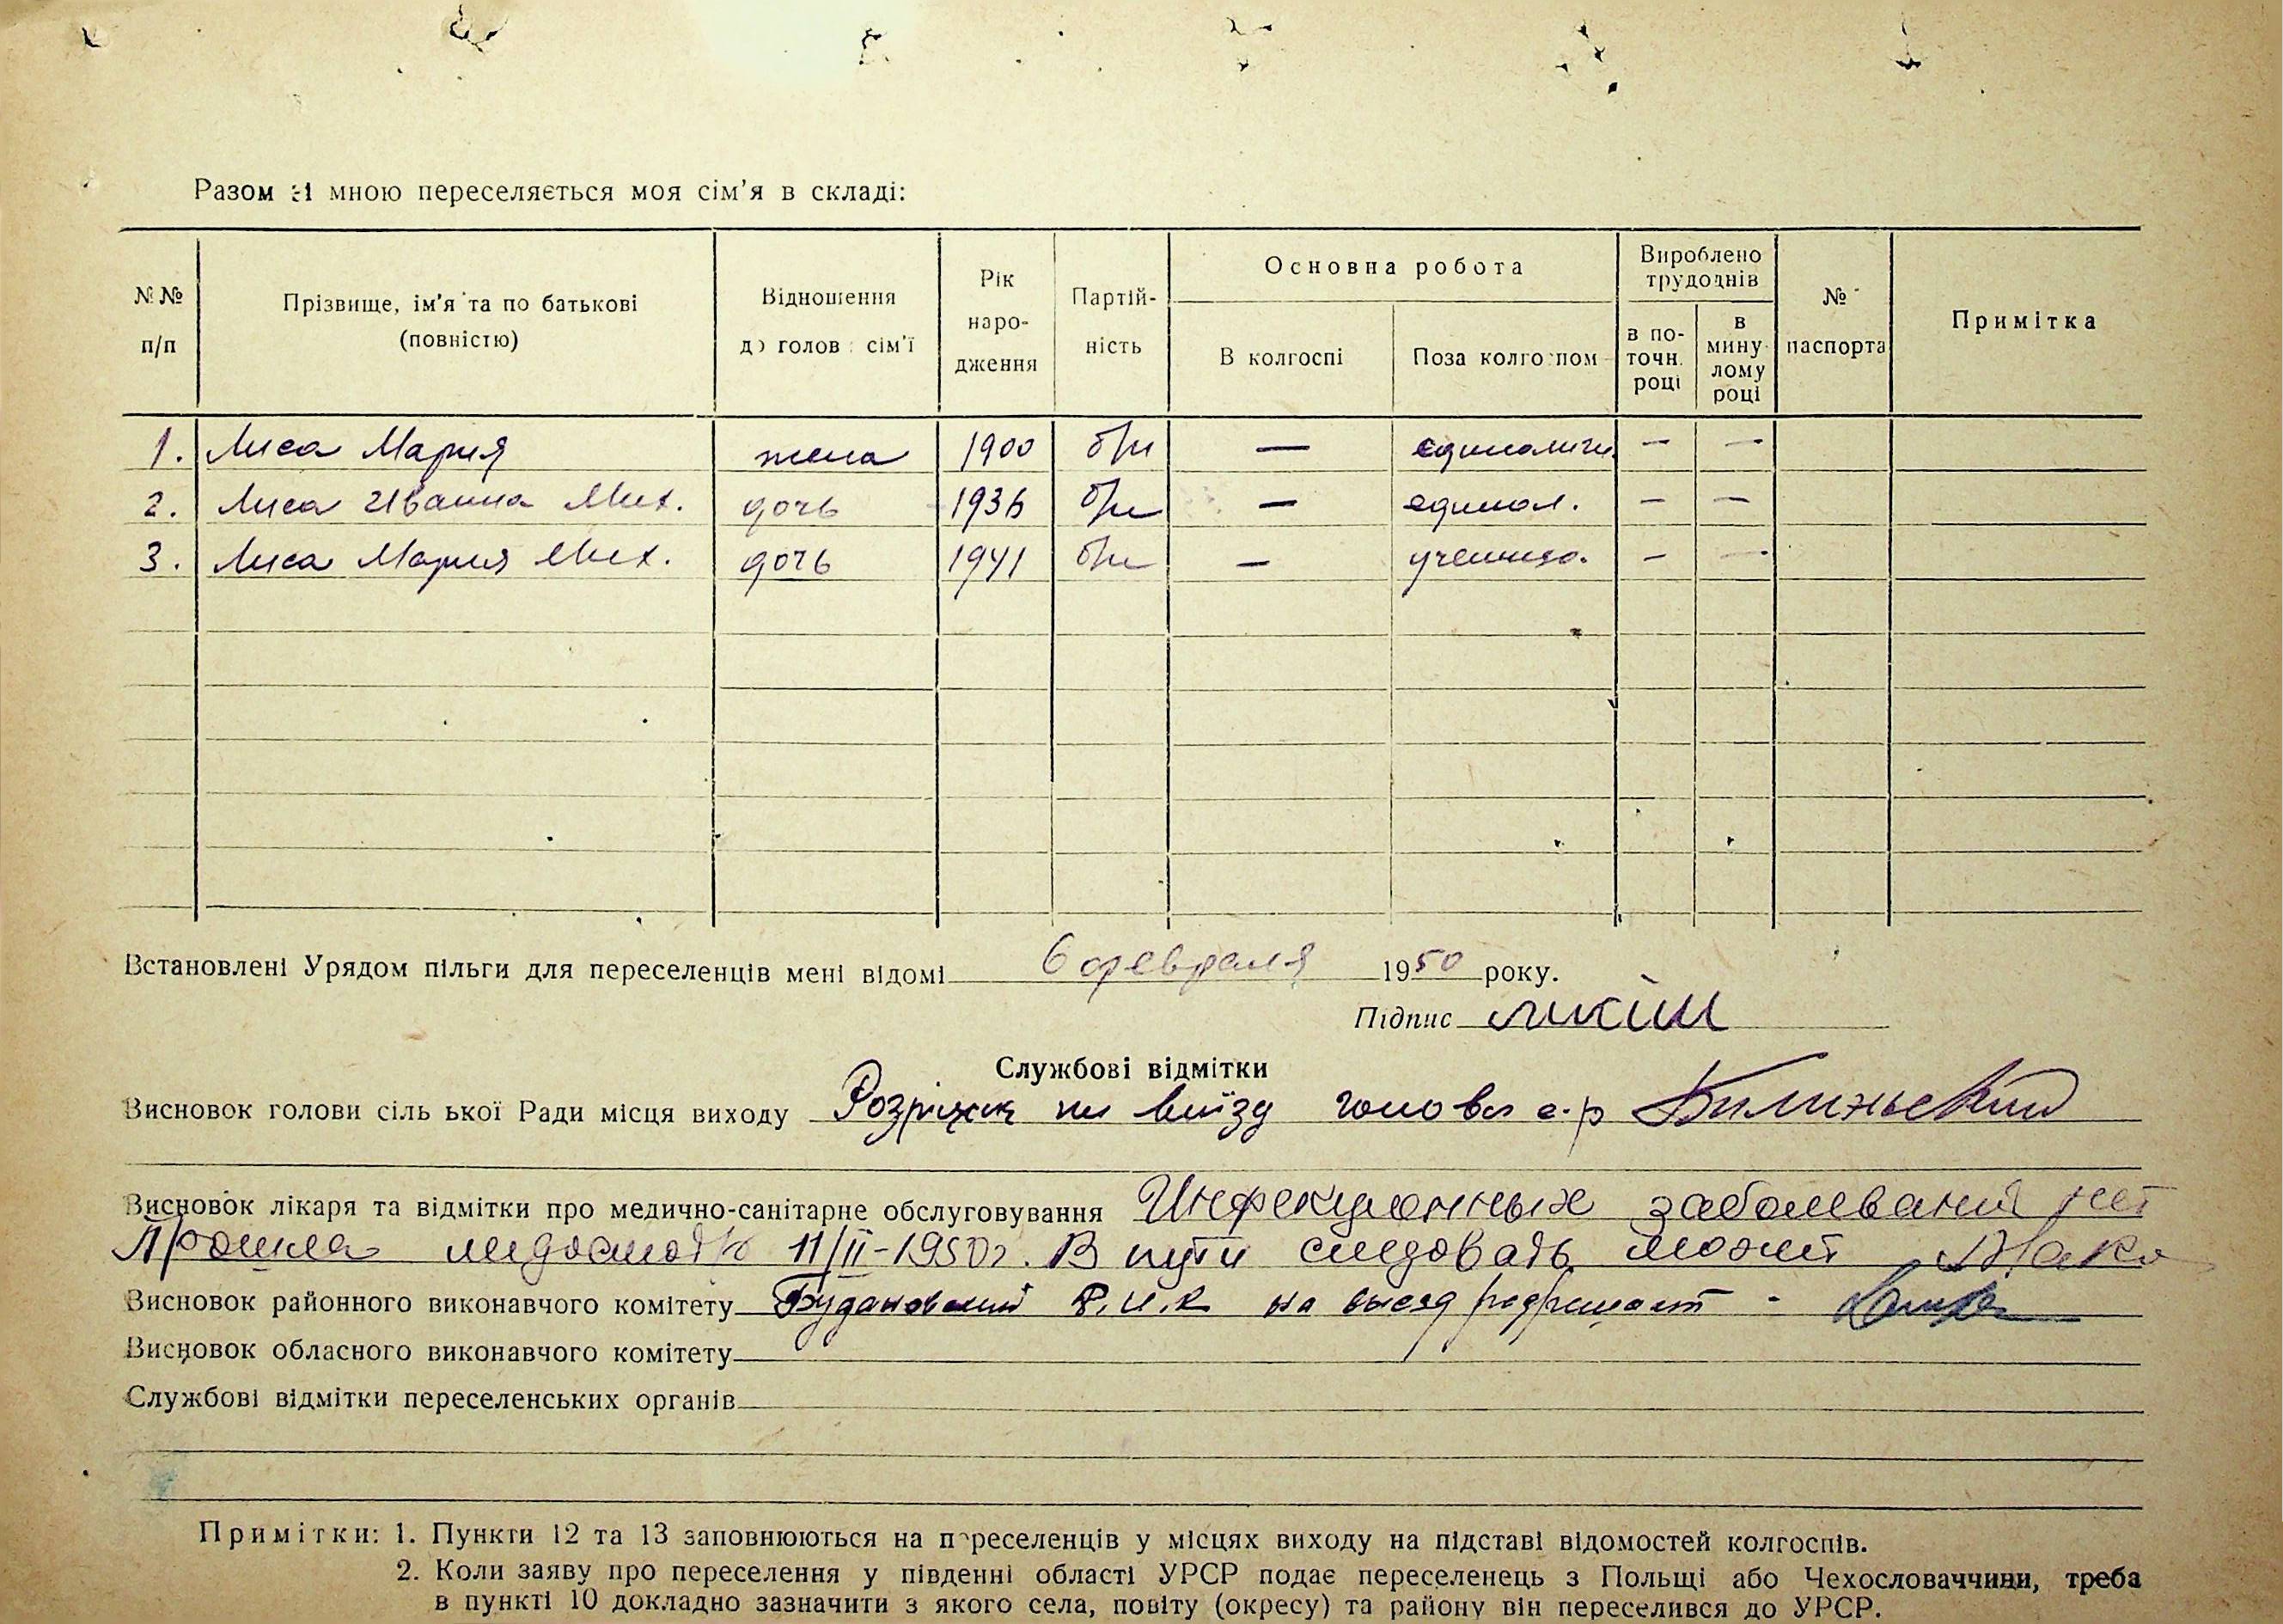 Разом зі мною переселяється моя сім'я в складі:
№№ п/п
Прізвище, ім'я та по батькові (повністю)
Відношення до голови сім'ї
Рік народження
Партійність
Основна робота
В колгоспі
Поза колгоспом
Вироблено трудоднів
в поточн. році
в минулому році
№ паспорта
Примітка
1. Лиса Мария жена 1900 б/п — єдинолични. — —
2. Лиса Иванна Мих. дочь 1936 б/п — единол. — —
3. Лиса Мария Мих. дочь 1941 б/п — ученица. — —
Встановлені Урядом пільги для переселенців мені відомі 6 февраля 1950 року.
Підпис
Службові відмітки
Висновок голови сільської Ради місця виходу на виїзд голова с.р
Висновок лікаря та відмітки про медично-санітарне обслуговування Инфекционных заболеваний нет
Прошла медосмотр 11/II-1950г. В пути следовать может
Висновок районного виконавчого комітету Будановский Р.И.К на выезд разрешает -
Висновок обласного виконавчого комітету
Службові відмітки переселенських органів
Примітки: 1. Пункти 12 та 13 заповнюються на переселенців у місцях виходу на підставі відомостей колгоспів.
2. Коли заяву про переселення у південні області УРСР подає переселенець з Польщі або Чехословаччини, треба
в пункті 10 докладно зазначити з якого села, повіту (окресу) та району він переселився до УРСР.